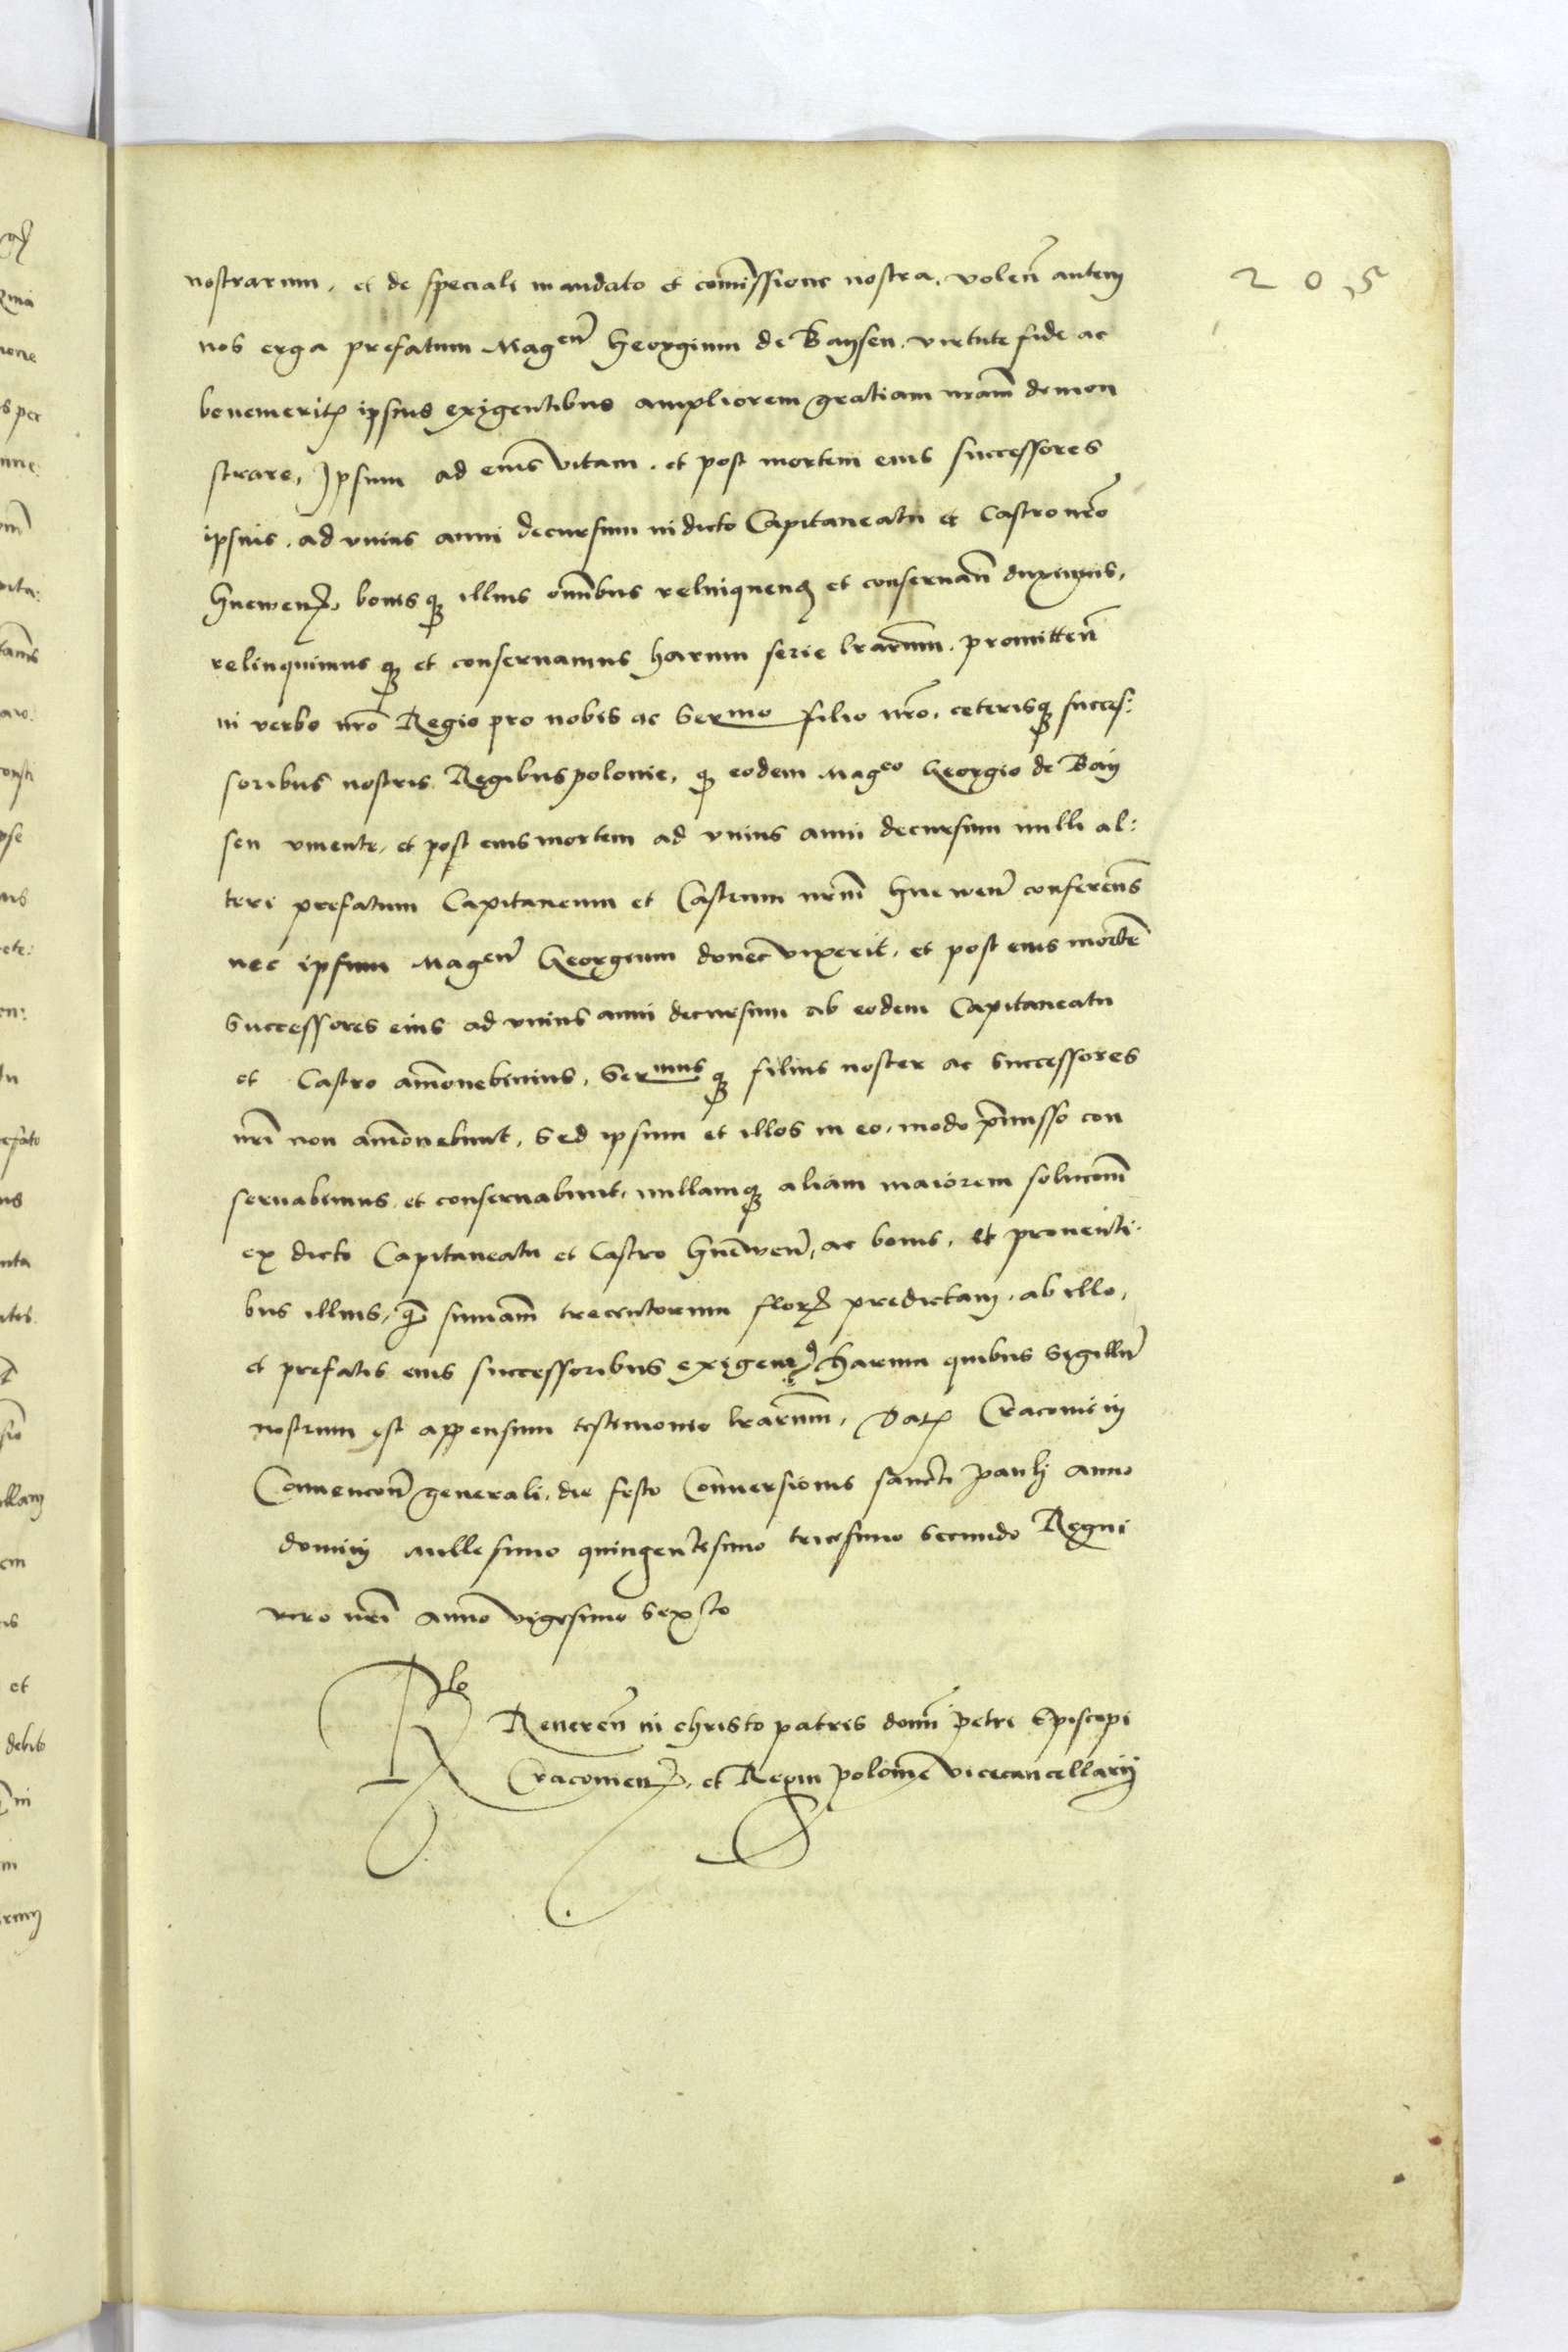 205
nostrarum. et de speciali mandato et com̄issione nostra. volen̄ autem
nos erga prefatum Mag en̄ Georgium de Baysen. virtute fide ac
benemerit̨ ipsius exigentibus ampliorem gratiam nr̄am demon
strare, Ipsum ad eius vitam. et post mortem eius successores
ipsius. ad vnius anni decursum in dicto Capitaneatu et Castro nr̄o
Gnewen̄, bonisq̨ illius om̄ibus relinquend̨ et conseruan̄ duximus,
relinquimusq̨ et conseruamus harum serie lr̄arum. promitten̄
in verbo nr̄o Regio pro nobis ac Sermo filio nr̄o. ceterisq̨ succes:
soribus nostris Regibus polonie, q̨ eodem Mag co Georgio de Bay
sen viuente, et post eius mortem ad vnius anni decursum nulli al:
teri prefatum Capitaneatum et Castrum nr̄m Gnewen̄ conferem̄s
nec ipsum Mag en̄ Georgium donec vixerit, et post eius morte͂
Successores eius ad vnius anni decursum ab eodem Capitaneatu
et Castro am̄ouebimus, Sermusq̨ filius noster ac Successores
nr̄i non am̄ouebunt, Sed ipsum et illos in eo, modo p̄misso con
seruabimus et conseruabunt, nullamq̨ aliam maiorem soluc̄om̄
ex dicto Capitaneatu et Castro Gnewen̄, ac bonis, et prouenti
bus illius, q̄ sum̄am trecentorum flor̨ predictam, ab illo,
et prefatis eius successoribus exigem9 harum quibus Sigillū
nostrum est appensum testimonio lr̄arum, Dat̨ Cracouie in
Conuenc̄on̄ generali, die festo Conuersionis sancti Pauli anno
domini millesimo quingentesimo tricesimo secundo Regni
vero nr̄i anno vigesimo Sexto
Rlo Reueren̄ in christo patris domi͂ petri Episcopi
Cracouien̄, et Regni polonie͂ vicecancellarij